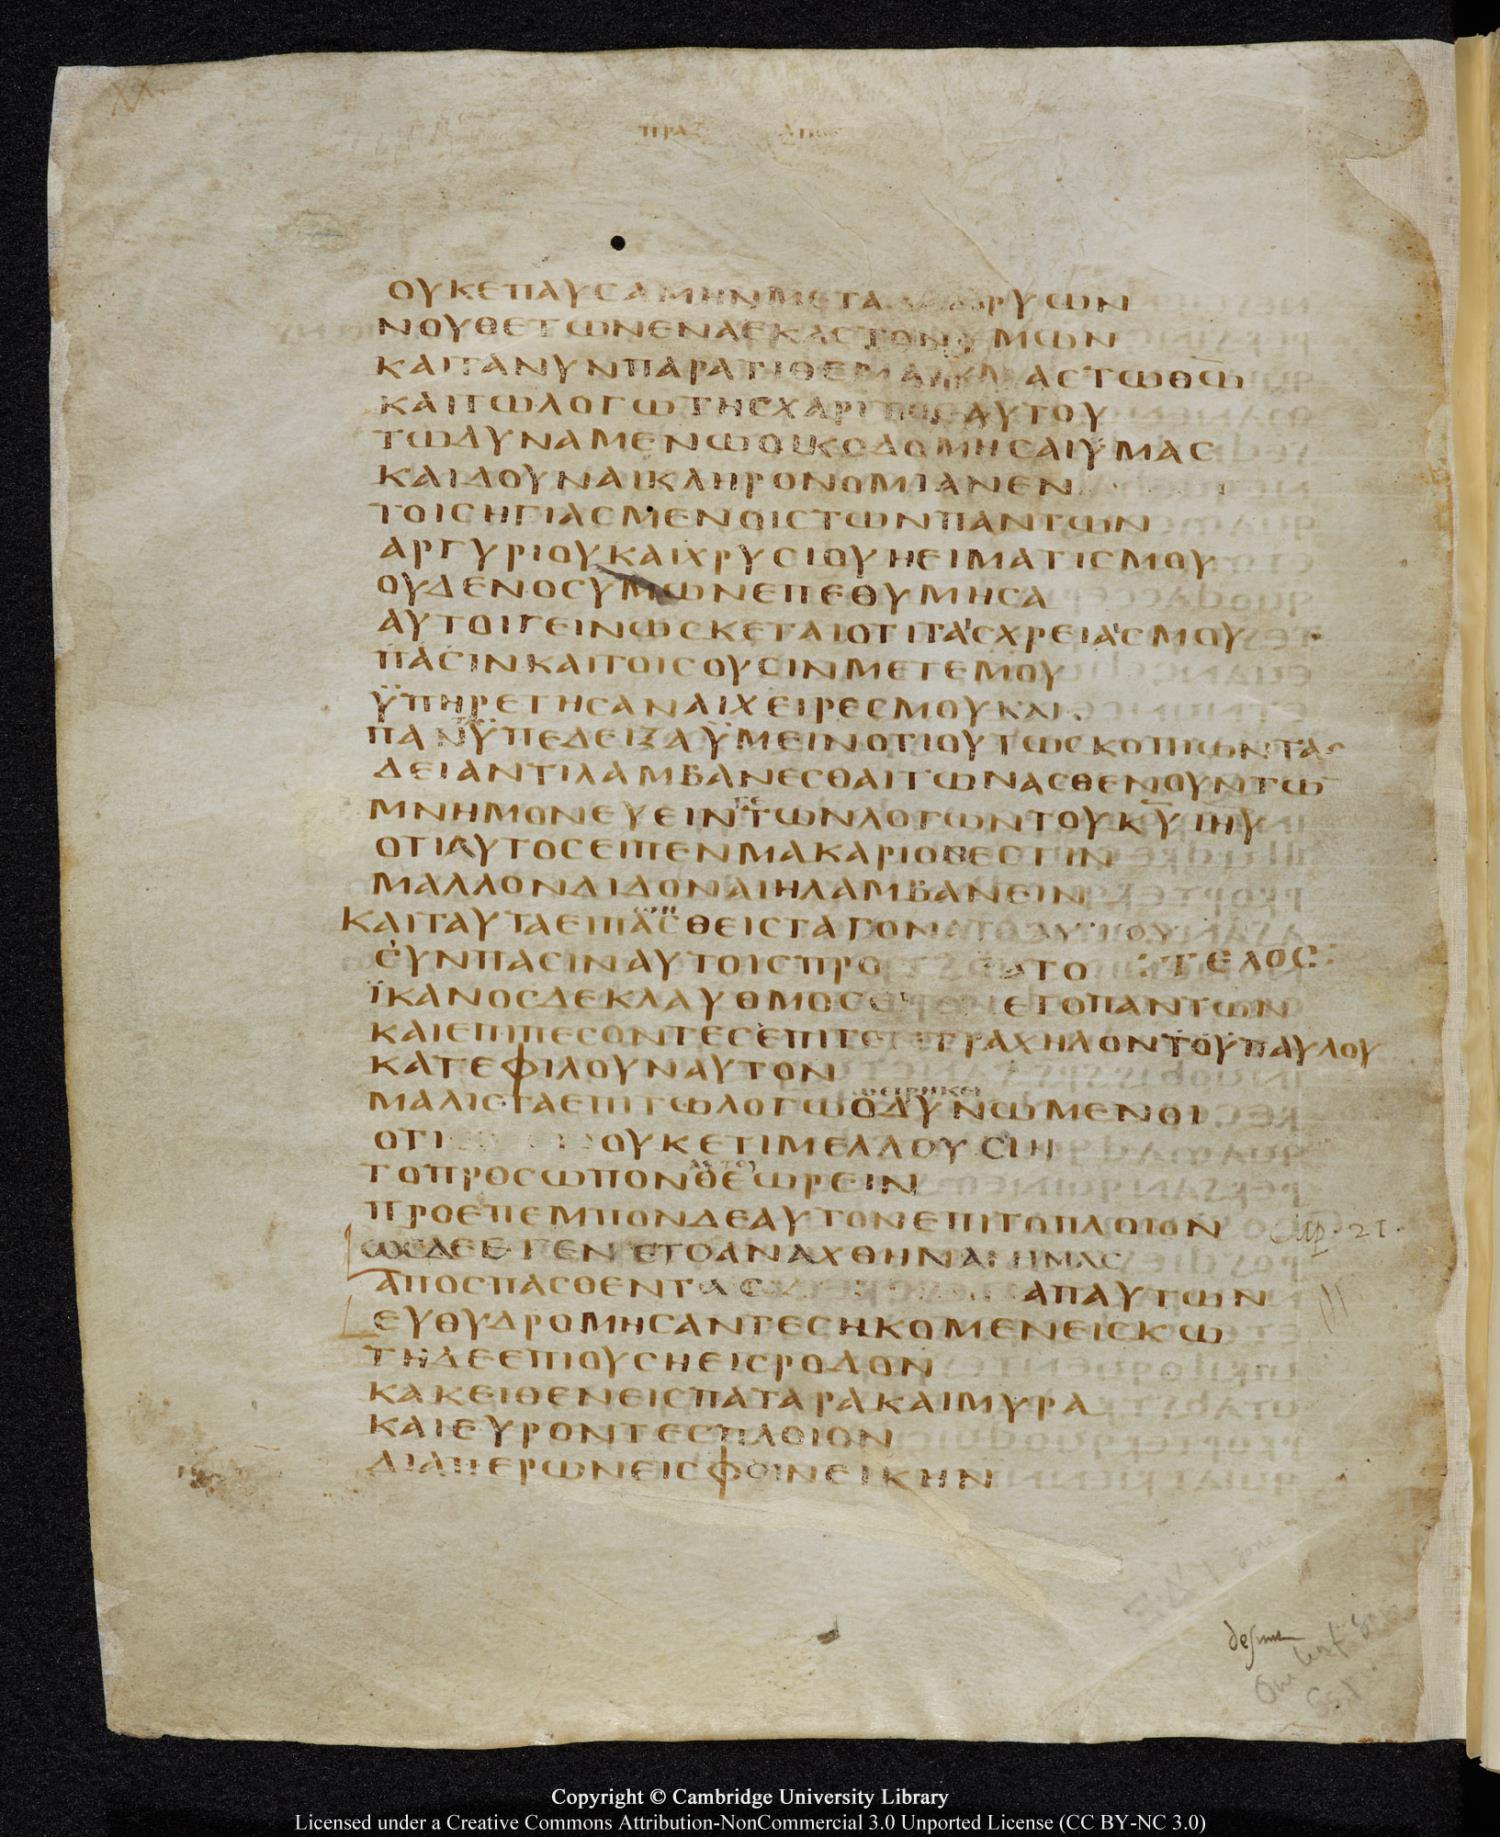 ΟΥΚΕΠΑΥΣΑΜΗΝΜΕΤΑ ΡΥΩΝ
ΝΟΥΘΕΤΩΝΕΝΑΕΚΑΣΤΟΝΥΜΩΝ
ΚΑΙΤΑΝΥΝΠΑΡΑΤΙΘΕΜΑΙ ΑΣΤΩΘΩ
ΚΑΙΤΩΛΟΓΩΤΗΣΧΑΡΙΤΟΣΑΥΤΟΥ
ΤΩΔΥΝΑΜΕΝΩΟΙΚΟΔΟΜΗΣΑΙΥΜΑΣ
ΚΑΙΔΟΥΝΑΙΚΛΗΡΟΝΟΜΙΑΝΕΝ
ΤΟΙΣΗΓΙΑΣΜΕΝΟΙΣΤΩΝΠΑΝΤΩΝ
ΑΡΓΥΡΙΟΥΚΑΙΧΡΥΣΙΟΥΗΕΙΜΑΤΙΣΜΟΥ
ΟΥΔΕΝΟΣΥΜΩΝΕΠΕΘΥΜΗΣΑ
ΑΥΤΟΙΓΕΙΝΩΣΚΕΤΑΙΟΤΙΤΑΣΧΡΕΙΑΣΜΟΥ
ΠΑΣΙΝΚΑΙΤΟΙΣΟΥΣΙΝΜΕΤΕΜΟΥ
ΫΠΗΡΕΤΗΣΑΝΑΙΧΕΙΡΕΣΜΟΥΚΑΙ
ΠΑΝΫΠΕΔΕΙΞΑΫΜΕΙΝΟΤΙΟΥΤΩΣΚΟΠΙΩΝΤΑΣ
ΔΕΙΑΝΤΙΛΑΜΒΑΝΕΣΘΑΙΤΩΝΑΣΘΕΝΟΥΝΤΩ
ΜΝΗΜΟΝΕΥΕΙΝΤΩΝΛΟΓΩΝΤΟΥΚΥ ΙΗΥ
ΟΤΙΑΥΤΟΣΕΙΠΕΝΜΑΚΑΡΙΟΣΕΣΤΙΝ
ΜΑΛΛΟΝΔΙΔΟΝΑΙΗΛΑΜΒΑΝΕΙΝ
ΚΑΙΤΑΥΤΑΕΙΠΑΣΘΕΙΣΤΑΓΟΝΑΤΑΑΥΤΟΥ
ΣΥΝΠΑΣΙΝΑΥΤΟΙΣΠΡΟ ΑΤΟ ΤΕΛΟΣ
ΪΚΑΝΟΣΔΕΚΛΑΥΘΜΟΣ ΕΤΟΠΑΝΤΩΝ
ΚΑΙΕΠΙΠΕΣΟΝΤΕΣΕΠΙΤΟΝΤΡΑΧΗΛΟΝΤΟΥΠΑΥΛΟΥ
ΚΑΤΕΦΙΛΟΥΝΑΥΤΟΝ
ΜΑΛΙΣΤΑΕΠΙΤΩΛΟΓΩΟΔΥΝΩΜΕΝΟΙ
ΟΤΙ ΟΥΚΕΤΙΜΕΛΛΟΥΣΙΝ
ΤΟΠΡΟΣΩΠΟΝΘΕΩΡΕΙΝ
ΠΡΟΕΠΕΜΠΟΝΔΕΑΥΤΟΝΕΠΙΤΟΠΛΟΙΟΝ
ΕΓΕΝΕΤΟΑΝΑΧΘΗΝΑΙΗΜΑΣ
ΑΠΟΣΠΑΣΘΕΝΤΑΣ ΑΠΑΥΤΩΝ
ΕΥΘΥΔΡΟΜΗΣΑΝΤΕΣΗΚΟΜΕΝΕΙΣΚΩ
ΤΗΔΕΕΠΙΟΥΣΗΕΙΣΡΟΔΟΝ
ΚΑΚΕΙΘΕΝΕΙΣΠΑΤΑΡΑΚΑΙΜΥΡΑ
ΚΑΙΕΥΡΟΝΤΕΣΠΛΟΙΟΝ
ΔΙΑΠΕΡΩΝΕΙΣΦΟΙΝΕΙΚΗΝ
Copyright © Cambridge University Library
Licensed under a Creative Commons Attribution-NonCommercial 3.0 Unported License (CC BY-NC 3.0)